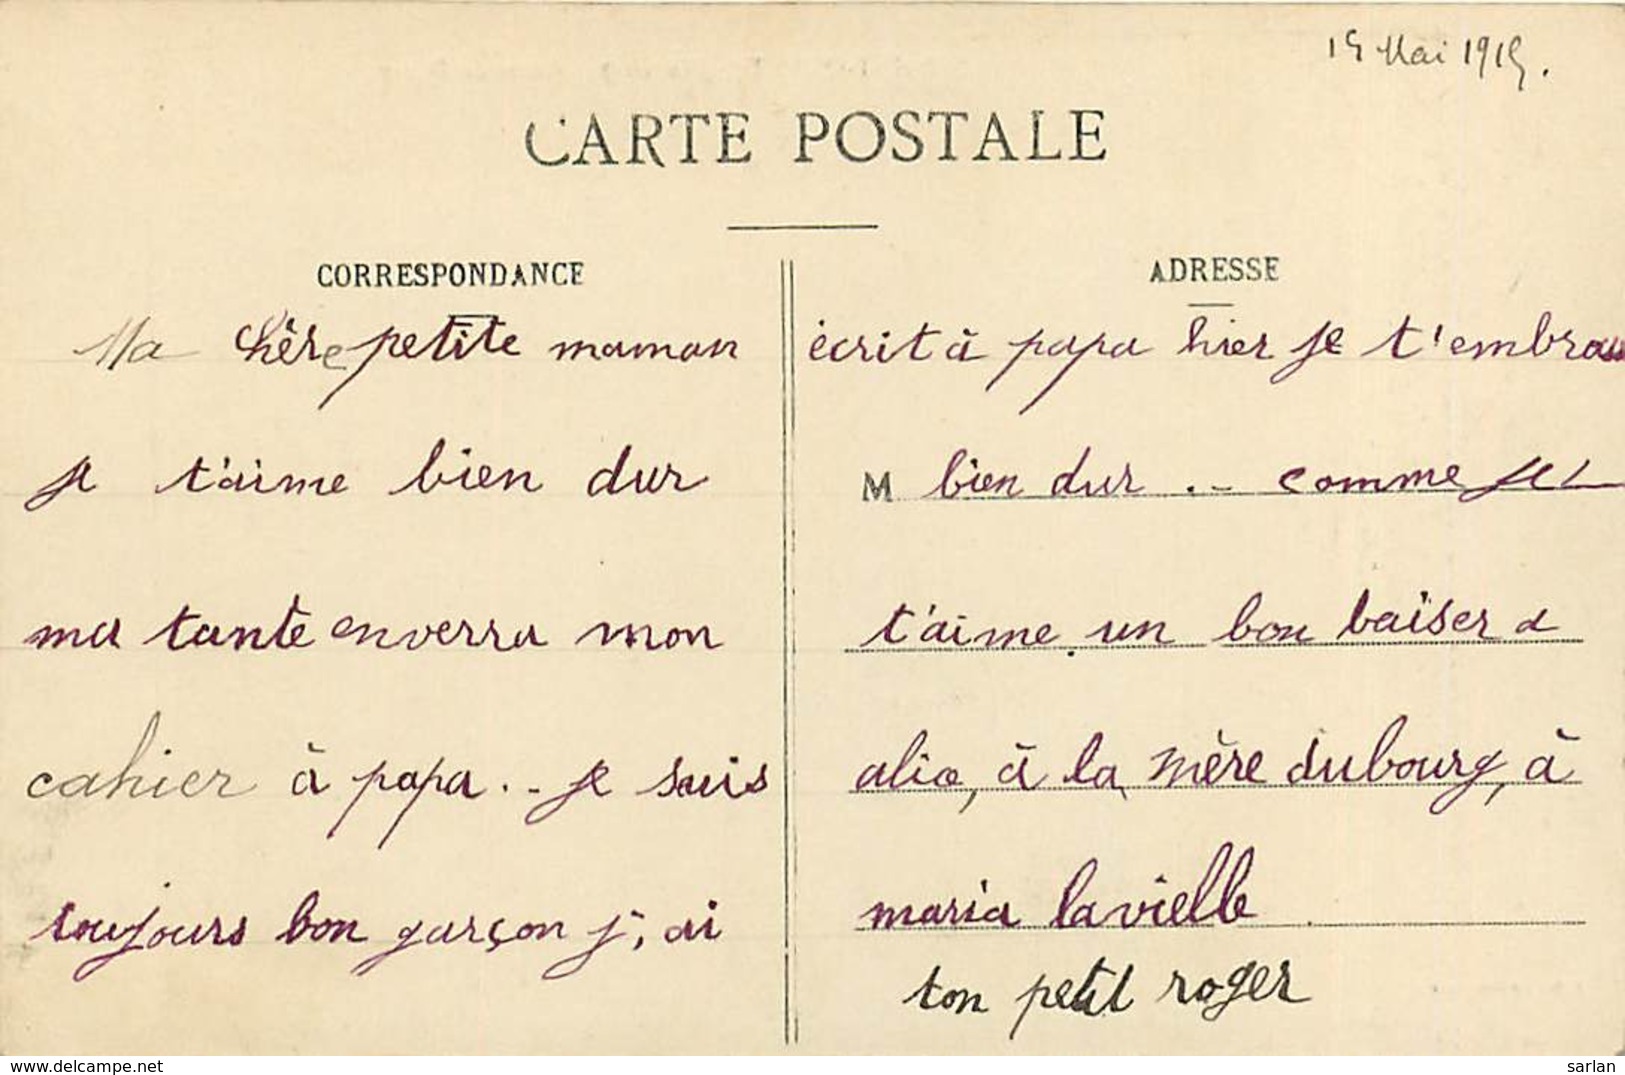 15 Mai 1915.
CARTE POSTALE
CORRESPONDANCE
Ma chère petite maman
je t'aime bien dur
ma tante enverra mon
cahier à papa .. je suis
toujours bon garçon j'ai
ADRESSE
écrit à papa hier je t'embrass
M bien dur .. comme je
t'aime un bon baiser a
alice, à la mère dubourg, à
maria lavielle
ton petit roger
https://www.delcampe.net
sarlan